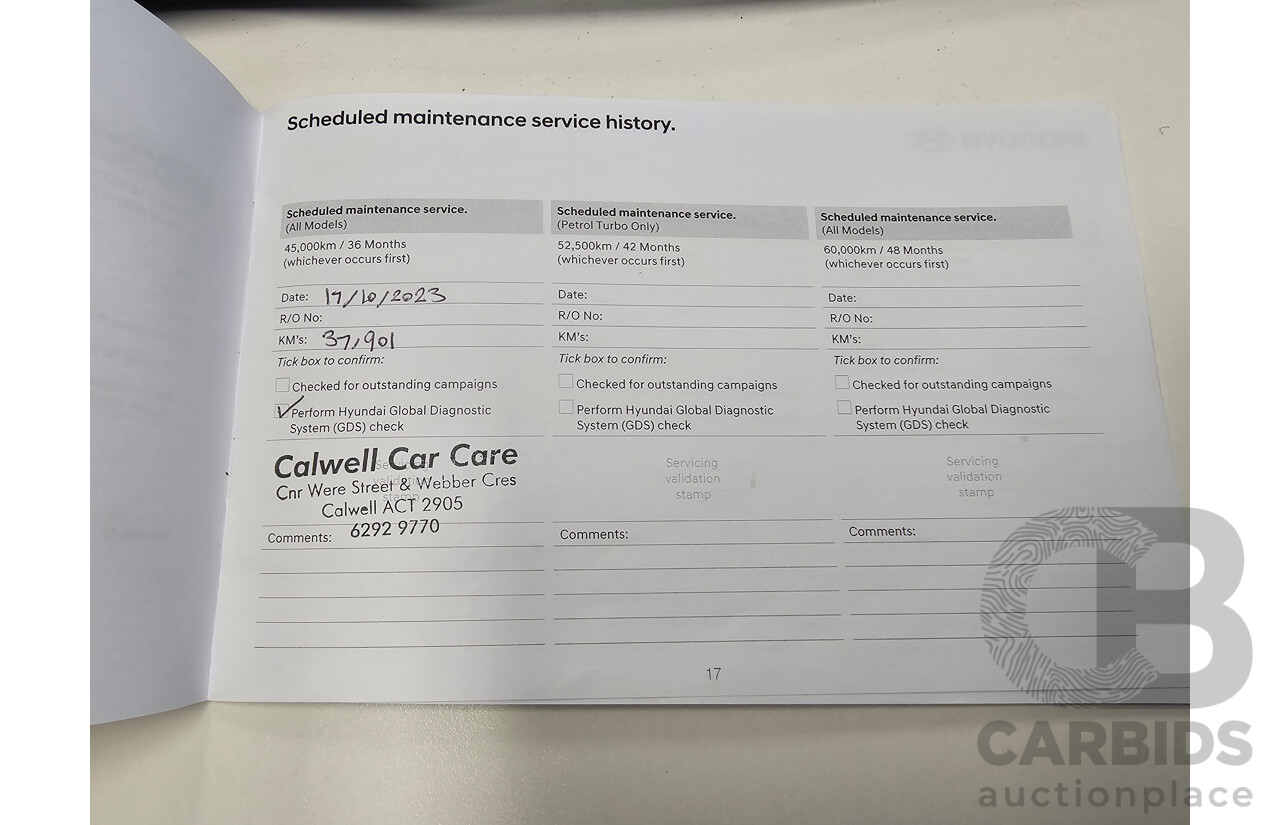 Scheduled maintenance service history.
HYUNDAI
Scheduled maintenance service.
(All Models)
45,000km / 36 Months
(whichever occurs first)
Date: 17/10/2023
R/O No:
KM's: 37,901
Tick box to confirm:
Checked for outstanding campaigns
Perform Hyundai Global Diagnostic
System (GDS) check
Servicing
validation
stamp
Calwell Car Care
Cnr Were Street & Webber Cres
Calwell ACT 2905
6292 9770
Comments:
Scheduled maintenance service.
(Petrol Turbo Only)
52,500km / 42 Months
(whichever occurs first)
Date:
R/O No:
KM's:
Tick box to confirm:
Checked for outstanding campaigns
Perform Hyundai Global Diagnostic
System (GDS) check
Servicing
validation
stamp
Comments:
Scheduled maintenance service.
(All Models)
60,000km / 48 Months
(whichever occurs first)
Date:
R/O No:
KM's:
Tick box to confirm:
Checked for outstanding campaigns
Perform Hyundai Global Diagnostic
System (GDS) check
Servicing
validation
stamp
Comments:
17
CB
CARBIDS
auctionplace